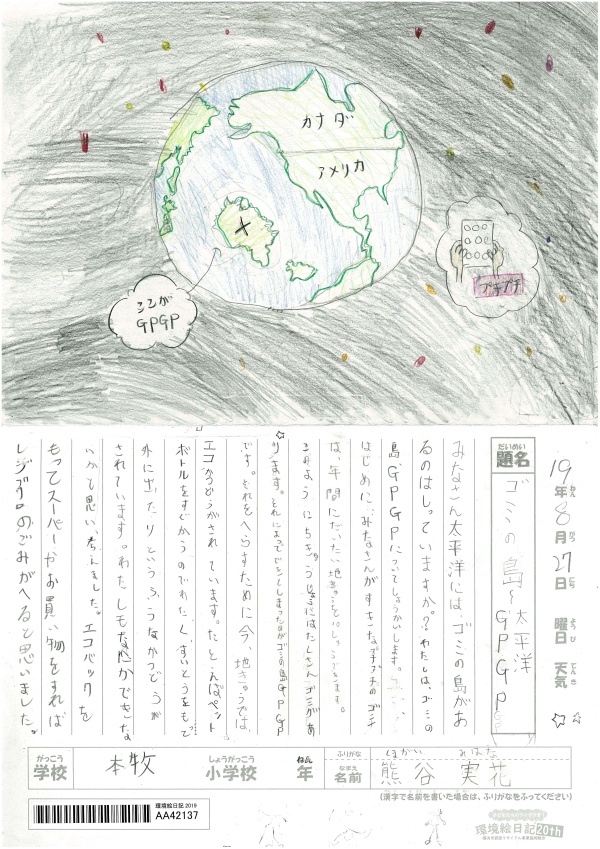 カナダ
アメリカ
ここが
GPGP
プチプチ
だいめい
題名
ゴミの島〜太平洋
GPGP
19年8月27日 曜日 天気
ねん がつ にち ようび てんき
みなさん太平洋には、ゴミの島があ
るのはしっていますか?わたしは、ゴミの
島GPGPについてしょうかいします。
はじめに、みなさんがすきなプチプチのゴミ
は、年間にだいたい地きゅう
このようにちきゅう にはたくさんゴミがあ
ります。それによってできてしまったのがゴミの島GPGP
です。それをへらすために今、地きゅうでは、
エコかつどうがされています。たとえばペット
ボトルをすてかうのでわなく、すいとうをもって
外に出たりというようなかつどうが
されています。わたしもなにかできな
いかと思い、考えました。エコバックを
もってスーパーやお買い物をすれば
レジぶくろのごみがへると思いました。
がっこう
学校
本牧
しょうがっこう
小学校
ねん
年
ふりがな
くまがい みはな
なまえ
名前
熊谷実花
(漢字で名前を書いた場合は、ふりがなをふってください)
環境絵日記2019
AA42137
環境絵日記20th